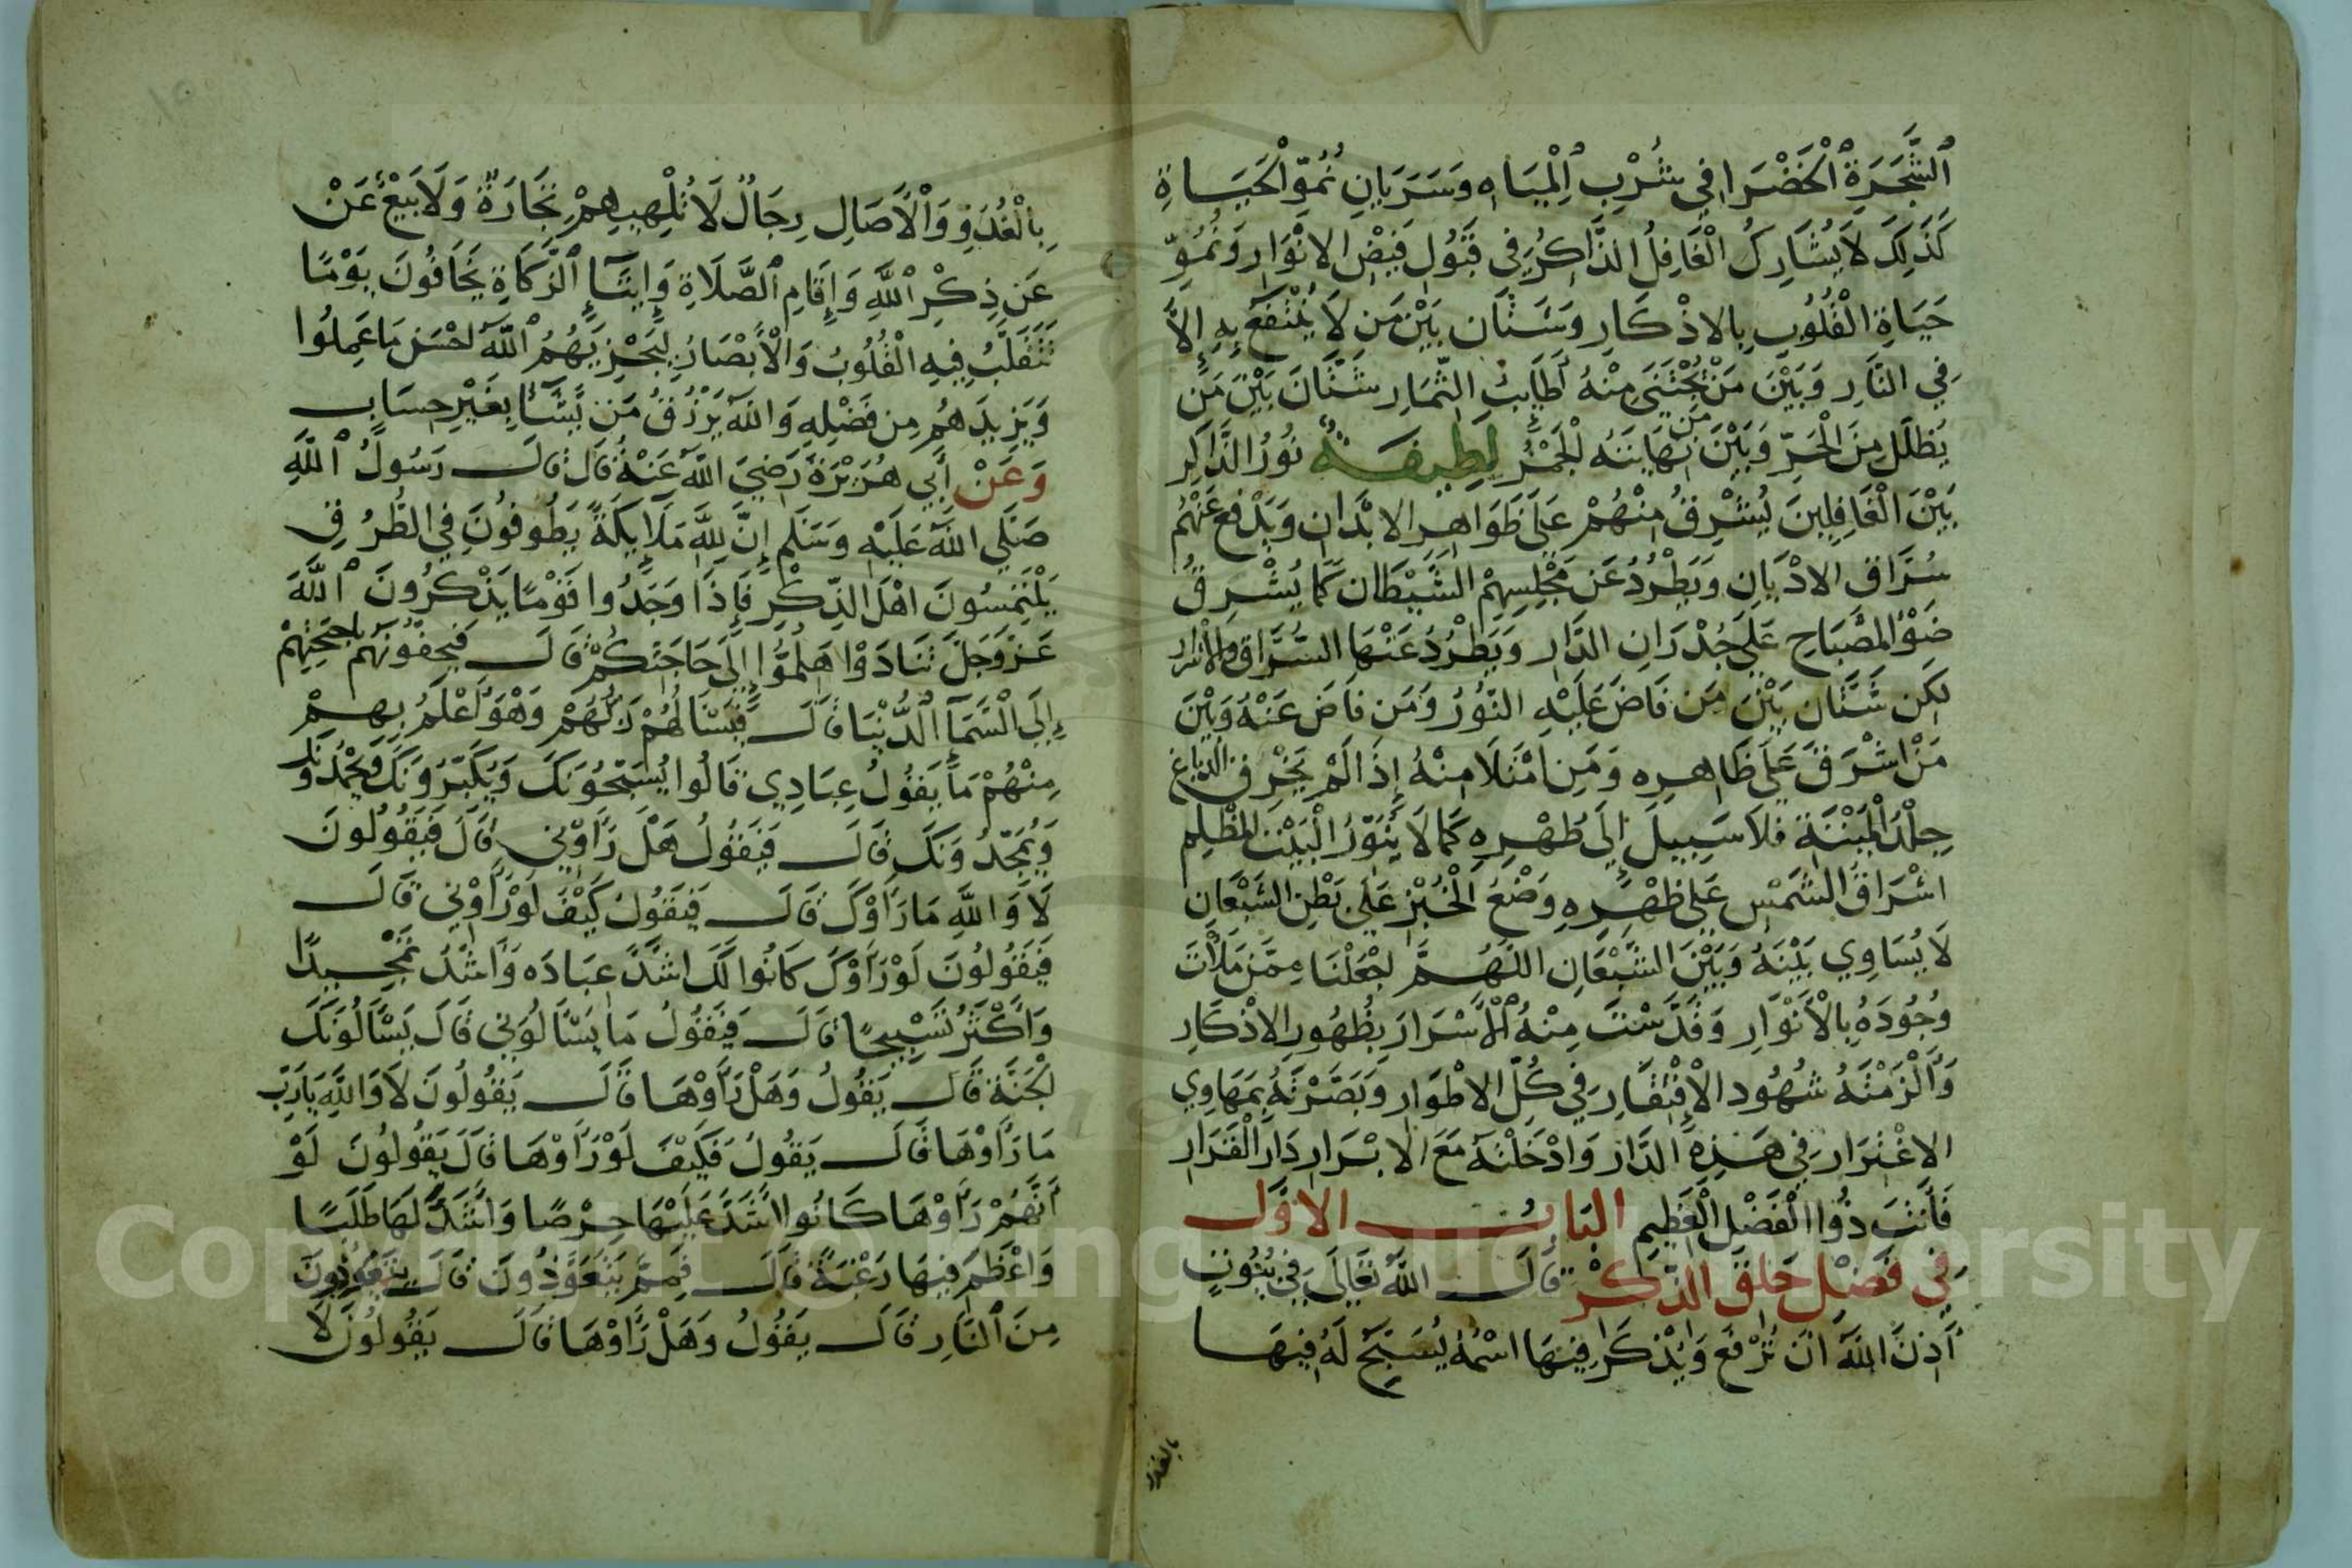 ٱلشَّجَرَةِ ٱلْخَضْرَا فِي شُرْبِ ٱلْمِيَاهِ وَسَرَيَانِ نُمُوِّ الْحَيَاةِ
كَذَلِكَ لَا يُشَارِكُ الْغَافِلُ الذَّاكِرَ فِي قَبُولِ فَيْضِ الانْوَارِ وَنُمُوِّ
حَيَاةِ الْقُلُوبِ بِالاذْكَارِ وَشَتَّانَ بَيْنَ مَن لَا يُنْتَفَعُ بِهِ إِلَّا
فِي النَّارِ وَبَيْنَ مَنْ يُجْتَنَى مِنْهُ أَطَايِبُ الثِّمَارِ شَتَّانَ بَيْنَ مَن
يُظَلِّلُ مِنَ الْحَرِّ وَبَيْنَ مَن نِهَايَتُهُ الْجَمْرُ لَطِيفَةٌ نُورُ الذَّاكِرِ
بَيْنَ الْغَافِلِينَ يُشْرِقُ مِنْهُمْ عَلَى ظَوَاهِرِ الابْدَانِ وَيَدْفَعُ عَنْهُمْ
سُرَّاقَ الادْيَانِ وَيَطْرُدُ عَن مَجْلِسِهِمْ الشَّيْطَان كَمَا يُشْرِقُ
ضَوْءُ الْمِصْبَاحِ عَلَى جُدْرَانِ الدَّارِ وَيَطْرُدُ عَنْهَا السُّرَّاقَ وَالاشرار
لَكِن شَتَّان بَيْنَ مَن فَاضَ عَلَيْهِ النُّورُ وَمَن فَاضَ عَنْهُ وَبَيْنَ
مَنْ اشْرَقَ عَلَى ظَاهِرِهِ وَمَنِ امْتَلَا مِنْهُ إِذَا لَمْ يَخْرِقِ الدباغ
جِلْدَ الْمَيْتَةِ فَلَا سَبِيلَ إِلَى طُهْرِهِ كَمَا لَا يُنَوِّرُ الْبَيْتَ الْمُظْلِمِ
اشْرَاقُ الشَّمْسِ عَلَى ظَهْرِهِ وَضْعُ الْخُبْزِ عَلَى بَطْنِ الشَّبْعَانِ
لَا يُسَاوِي بَيْنَهُ وَبَيْنَ الشَّبْعَانِ اللَّهُمَّ اجْعَلْنَا مِمَّن مَلَأْتَ
وُجُودَهُ بِالْأَنْوَارِ وَقَدَّسْتَ مِنْهُ ٱلْأَسْرَارَ بِظُهُورِ الاذْكَارِ
وَأَلْزَمْتَهُ شُهُودَ الْإِفْتِقَارِ فِي كُلِّ الاطْوَارِ وَبَصَّرْتَهُ بِمَهَاوِي
الاغْتِرَارِ فِي هَذِهِ الدَّارِ وَادْخَلْتَهُ مَعَ الابْرَارِ دَارَ الْقَرَارِ
فَأَنْتَ ذُوا الْفَضْلِ الْعَظِيمِ البَابُ الاوَّل
فِي فَضْلِ حَلَقِ الذِّكْرِ قَالَ اللَّهُ تَعَالَى فِي بُيُوتٍ
أَذِنَ اللَّهُ انْ تُرْفَعَ وَيُذْكَرَ فِيهَا اسْمُهُ يُسَبِّحُ لَهُ فِيهَا
بالغدو
بِالْغُدُوِّ وَالْآصَالِ رِجَالٌ لَا تُلْهِيهِمْ تِجَارَةٌ وَلَا بَيْعٌ عَنْ
عَن ذِكْرِ ٱللَّهِ وَإِقَامِ ٱلصَّلَاةِ وَإِيتَآءِ ٱلزَّكَاةِ يَخَافُونَ يَوْمًا
تَتَقَلَّبُ فِيهِ الْقُلُوبُ وَالْأَبْصَارُ لِيَجْزِيَهُمُ ٱللَّهُ احْسَنَ مَا عَمِلُوا
وَيَزِيدَهُمْ مِن فَضْلِهِ وَاللَّهُ يَرْزُقُ مَن يَّشَآءُ بِغَيْرِ حِسَابٍ
وَعَنْ أَبِي هُرَيْرَةَ رَضِيَ اللَّهُ عَنْهُ قَالَ قَالَ رَسُولُ ٱللَّهِ
صَلَّى اللَّهُ عَلَيْهِ وَسَلَّم إِنَّ لِلَّهِ مَلَآئِكَةً يَطُوفُونَ فِي الطُّرُقِ
يَلْتَمِسُونَ اهْلَ الذِّكْرِ فَإِذَا وَجَدُوا قَوْمًا يَذْكُرُونَ ٱللَّهَ
عَزَّ وَجَلَّ تَنَادَوْا هَلُمُّوا إِلَى حَاجَتِكُمْ قَالَ فَيَحِفُّونَهُمْ بِاجْنِحَتِهِمْ
إِلَى الْسَّمَآءِ الدُّنْيَا قَالَ فَيَسْأَلُهُمْ رَبُّهُمْ وَهُوَ أَعْلَمُ بِهِمْ
مِنْهُمْ مَا يَقُولُ عِبَادِي قَالُوا يُسَبِّحُونَكَ وَيُكَبِّرُونَكَ وَيَحْمَدُونَكَ
وَيُمَجِّدُونَكَ قَالَ فَيَقُولُ هَلْ رَأَوْنِي قَالَ فَيَقُولُونَ
لَا وَاللَّهِ مَا رَأَوْكَ قَالَ فَيَقُولُ كَيْفَ لَوْ رَأَوْنِي قَالَ
فَيَقُولُونَ لَوْ رَأَوْكَ كَانُوا لَكَ اشَدَّ عِبَادَه وَاشَدَّ تَمْجِيدًا
وَأَكْثَرَ تَسْبِيحًا قَالَ فَيَقُولُ مَا يَسْأَلُونِي قَالَ يَسْأَلُونَكَ
الْجَنَّةَ قَالَ يَقُولُ وَهَلْ رَأَوْهَا قَالَ يَقُولُونَ لَا وَاللَّهِ يَارَبِّ
مَا رَأَوْهَا قَالَ يَقُولُ فَكَيْفَ لَوْ رَأَوْهَا قَالَ يَقُولُونَ لَوْ
أَنَّهُمْ رَأَوْهَا كَانُوا اشَدَّ عَلَيْهَا حِرْصًا وَاشَدَّ لَهَا طَلَبًا
وَاعْظَمَ فِيهَا رَغْبَةً قَالَ فَمِمَّ يَتَعَوَّذُونَ قَالَ يَتَعَوَّذُونَ
مِنَ ٱلنَّارِ قَالَ يَقُولُ وَهَلْ رَأَوْهَا قَالَ يَقُولُونَ لَا
Copyright © King Saud University